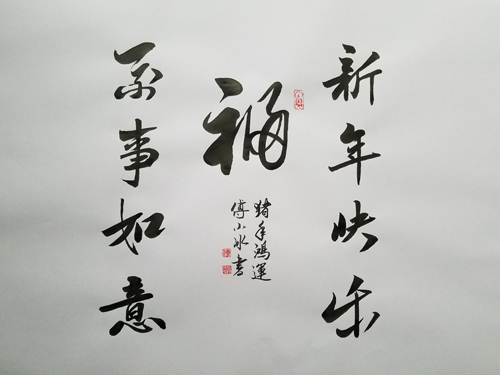 新年快乐
福
猪年鸿運
傅小冰書
萬事如意